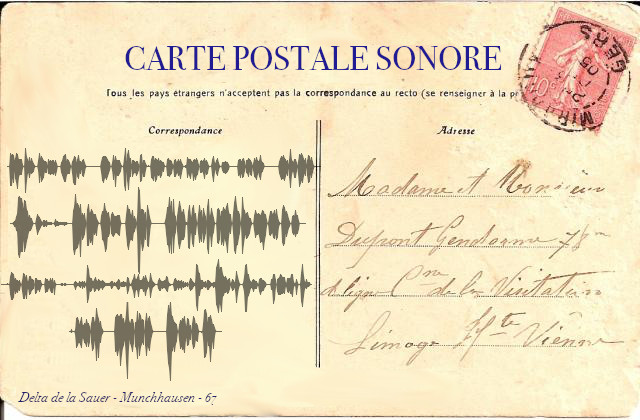 CARTE POSTALE SONORE
Tous les pays étrangers n'acceptent pas la correspondance au recto (se renseigner à la
Correspondance
Adresse
Madame et Monsieur
Dupont Gendarme 78
Limoge Hte Vienne
de la Visitation
10c
GERS
05
Delta de la Sauer - Munchhausen - 67